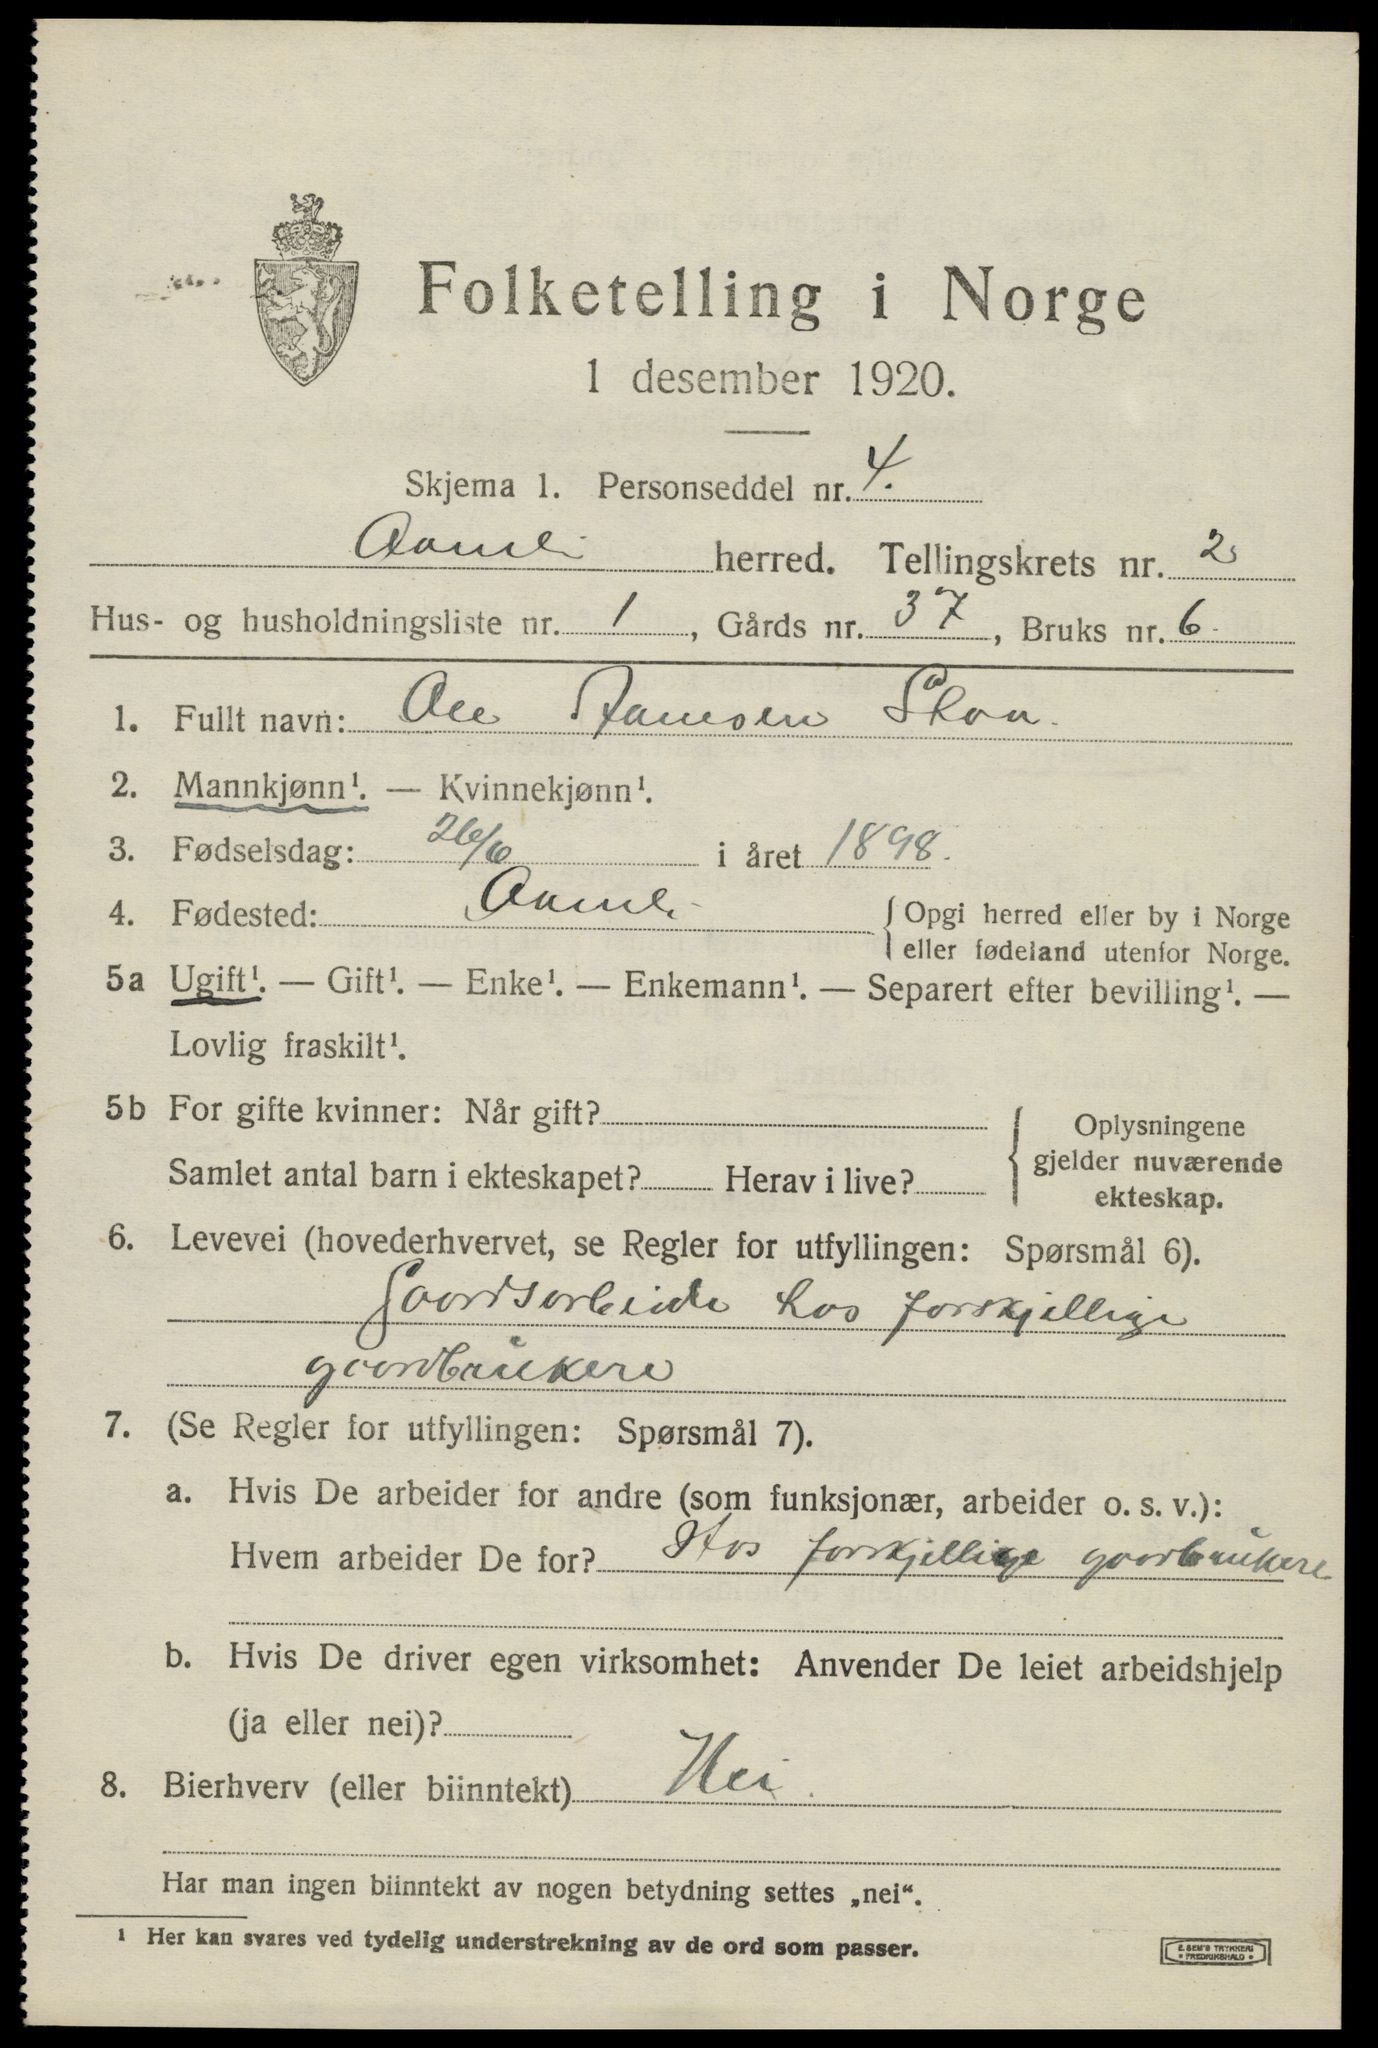 Folketelling i Norge
1 desember 1920.
Skjema 1. Personseddel nr. 4.
Aamli herred. Tellingskrets nr. 2
Hus- og husholdningsliste nr. 1, Gårds nr. 37, Bruks nr. 6.
1. Fullt navn: Ole
2. Mannkjønn¹. — Kvinnekjønn¹.
3. Fødselsdag: 26/6 i året 1898.
4. Fødested: Aamli { Opgi herred eller by i Norge
eller fødeland utenfor Norge.
5a Ugift¹. — Gift¹. — Enke¹. — Enkemann¹. — Separert efter bevilling¹. —
Lovlig fraskilt¹.
5b For gifte kvinner: Når gift?
Samlet antal barn i ekteskapet? Herav i live?
{ Oplysningene
gjelder nuværende
ekteskap.
6. Levevei (hovederhvervet, se Regler for utfyllingen: Spørsmål 6).
Gaardsarbeide hos forskjellige
gaardbrukere
7. (Se Regler for utfyllingen: Spørsmål 7).
a. Hvis De arbeider for andre (som funksjonær, arbeider o. s. v.):
Hvem arbeider De for? Hos forskjellige gaarbrukere
b. Hvis De driver egen virksomhet: Anvender De leiet arbeidshjelp
(ja eller nei)?
8. Bierhverv (eller biinntekt) Nei.
Har man ingen biinntekt av nogen betydning settes „nei“.
¹ Her kan svares ved tydelig understrekning av de ord som passer.
E. SEM'S TRYKKERI
• FREDRIKSHALD •